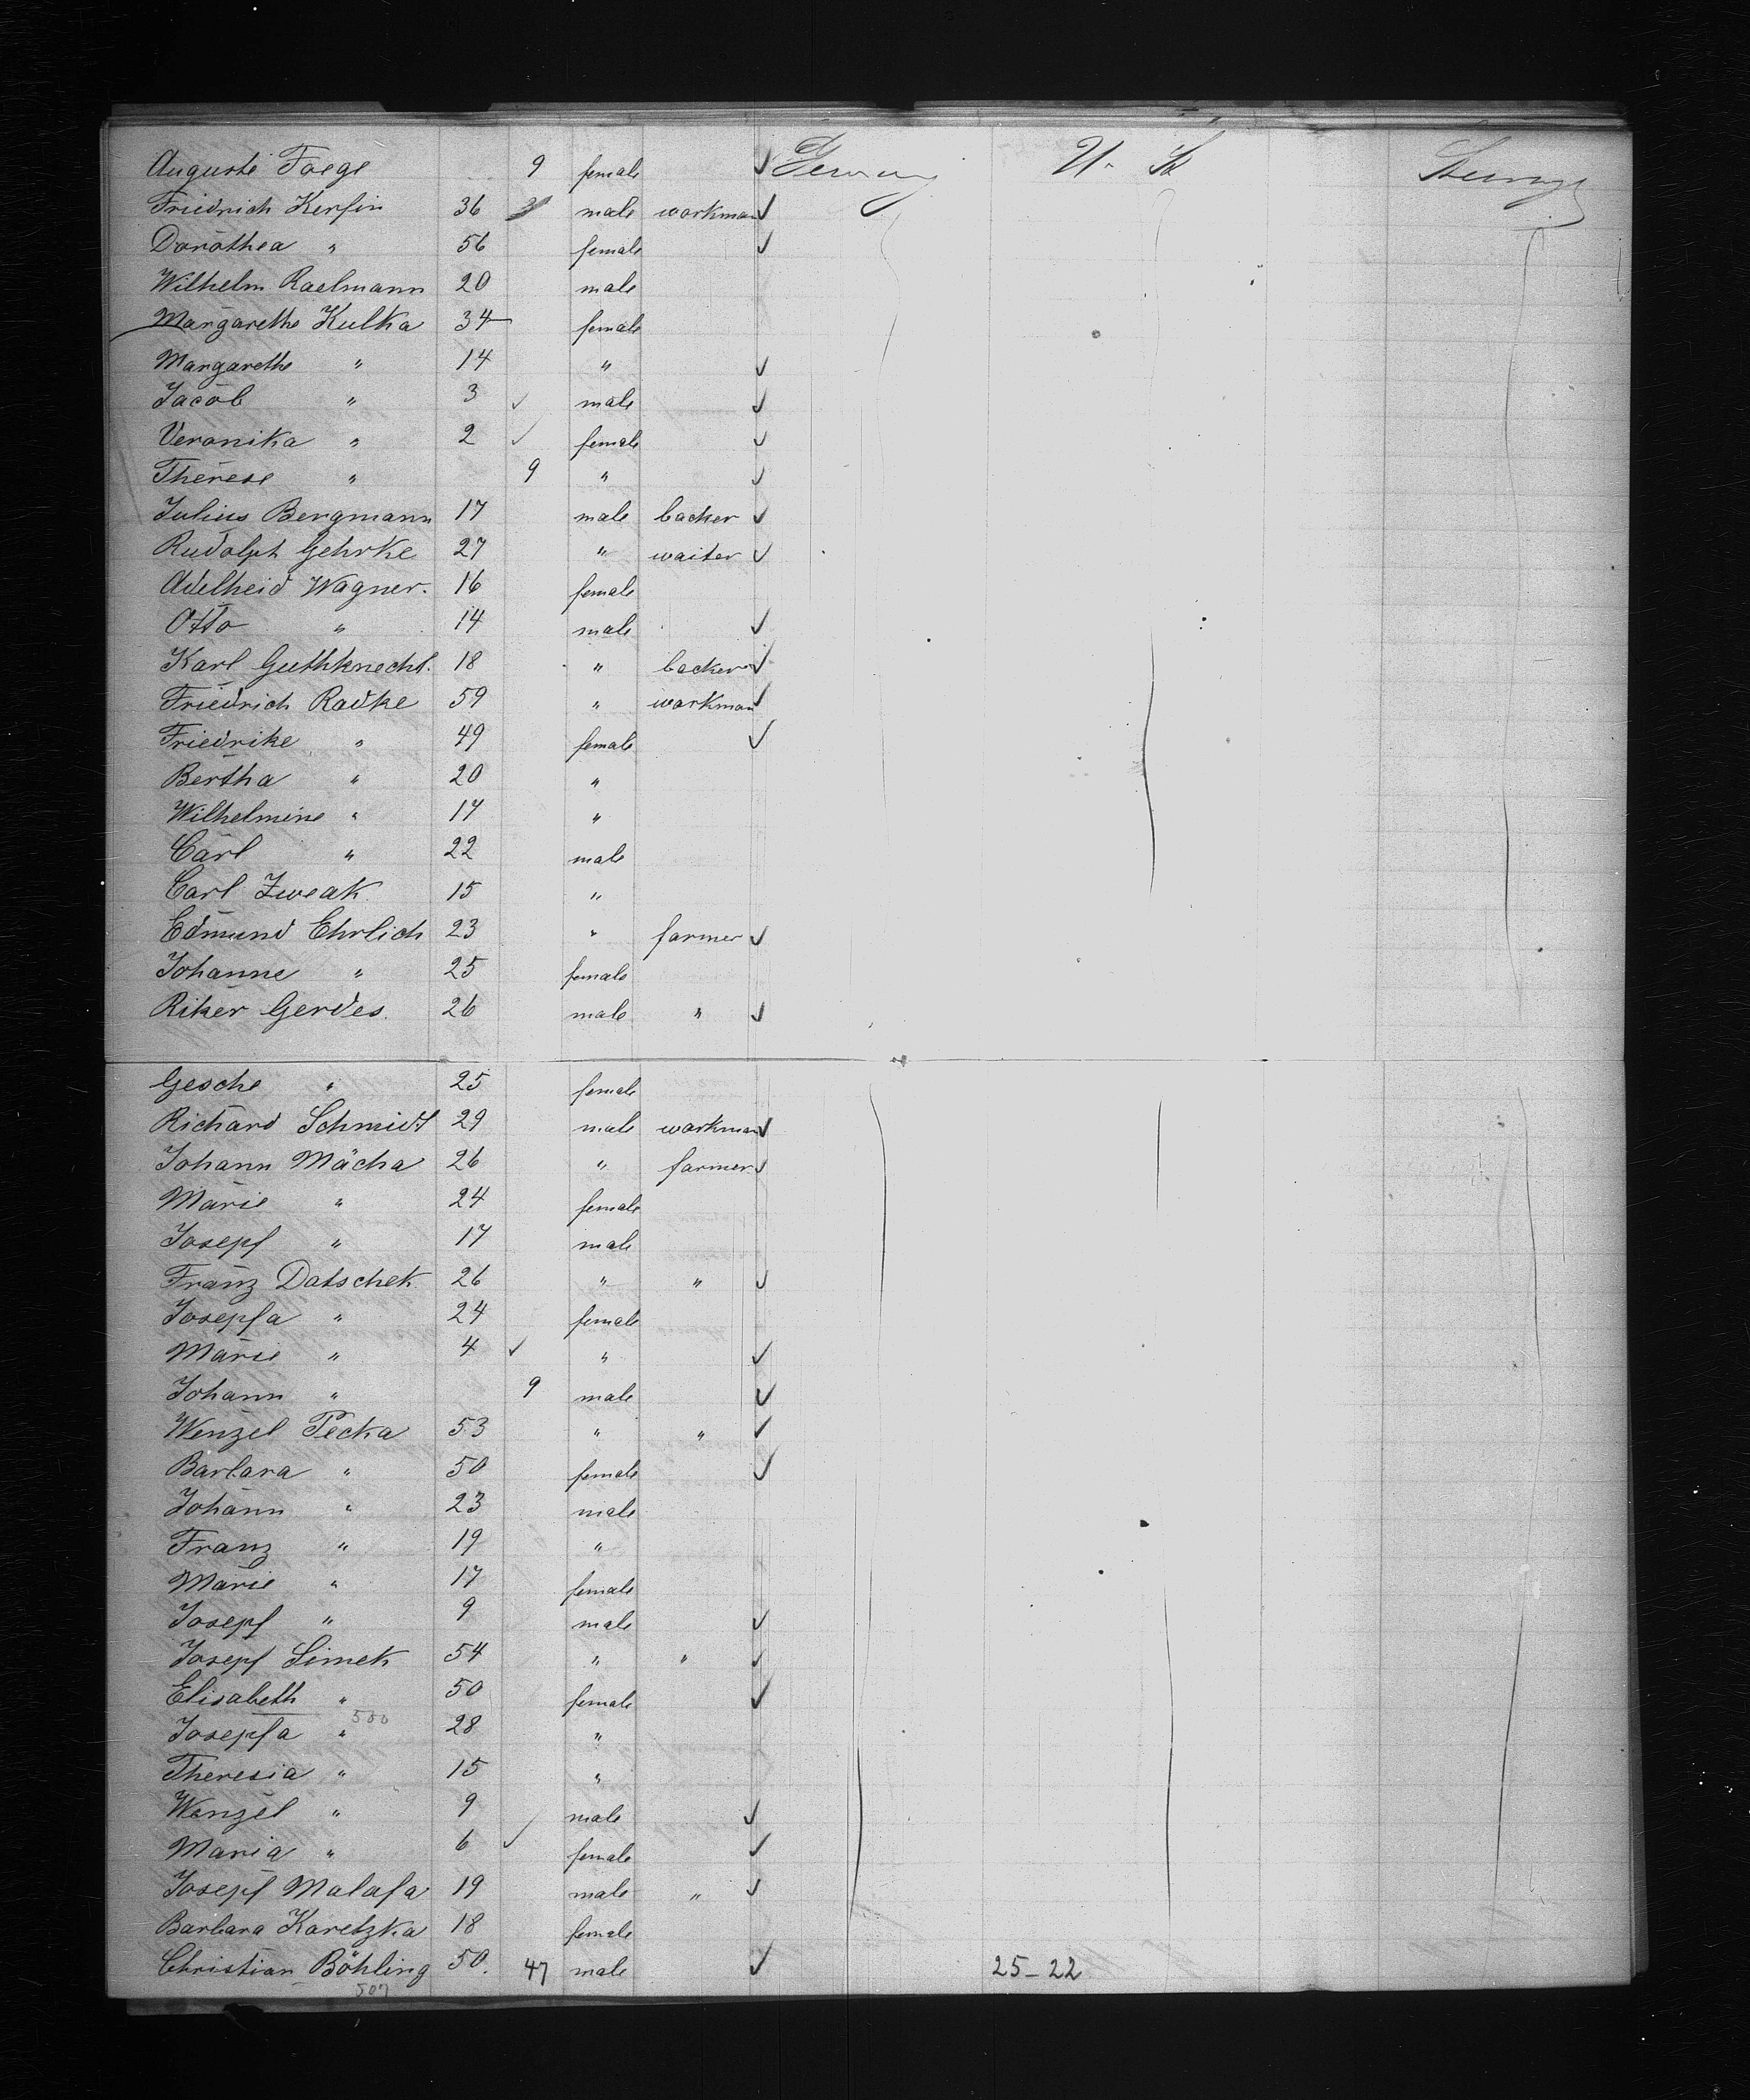 Auguste Foege 9 female Germany U. St Steerage
Friedrich Kerfin 36 male workman
Dorothea " 56 female
Wilhelm Raelmann 20 male
Margarethe Kulka 34 female
Margarethe " 14 "
Jacob " 3 male
Veronika " 2 female
Therese " 9 "
Julius Bergmann 17 male backer
Rudolph Gehrke 27 " waiter
Adelheid Wagner. 16 female
Otto " 14 male
Karl Guthknecht. 18 " backer
Friedrich Radke 59 " workman
Friedrike " 49 female
Bertha " 20 "
Wilhelmine " 17 "
Carl " 22 male
Carl Zweak 15 "
Edmund Ehrlich 23 " farmer
Johanne " 25 female
Riker Gerdes. 26 male "
Gesche " 25 female
Richard Schmidt 29 male workman
Johann Mácha 26 " farmer
Marie " 24 female
Josepf " 17 male
Franz Datschek 26 " "
Josepfa " 24 female
Marie " 4 "
Johann " 9 male
Wenzel Pecka 53 " "
Barbara " 50 female
Johann " 23 male
Franz " 19 "
Marie " 17 female
Josepf " 9 male
Josepf Simek 54 " "
Elisabeth " 50 female
500
Josepfa " 28 "
Theresia " 15 "
Wenzel " 9 male
Maria " 6 female
Josepf Malafa 19 male "
Barbara Karetzka 18 female
Christian Böhling 50. 47 male 25-22
507